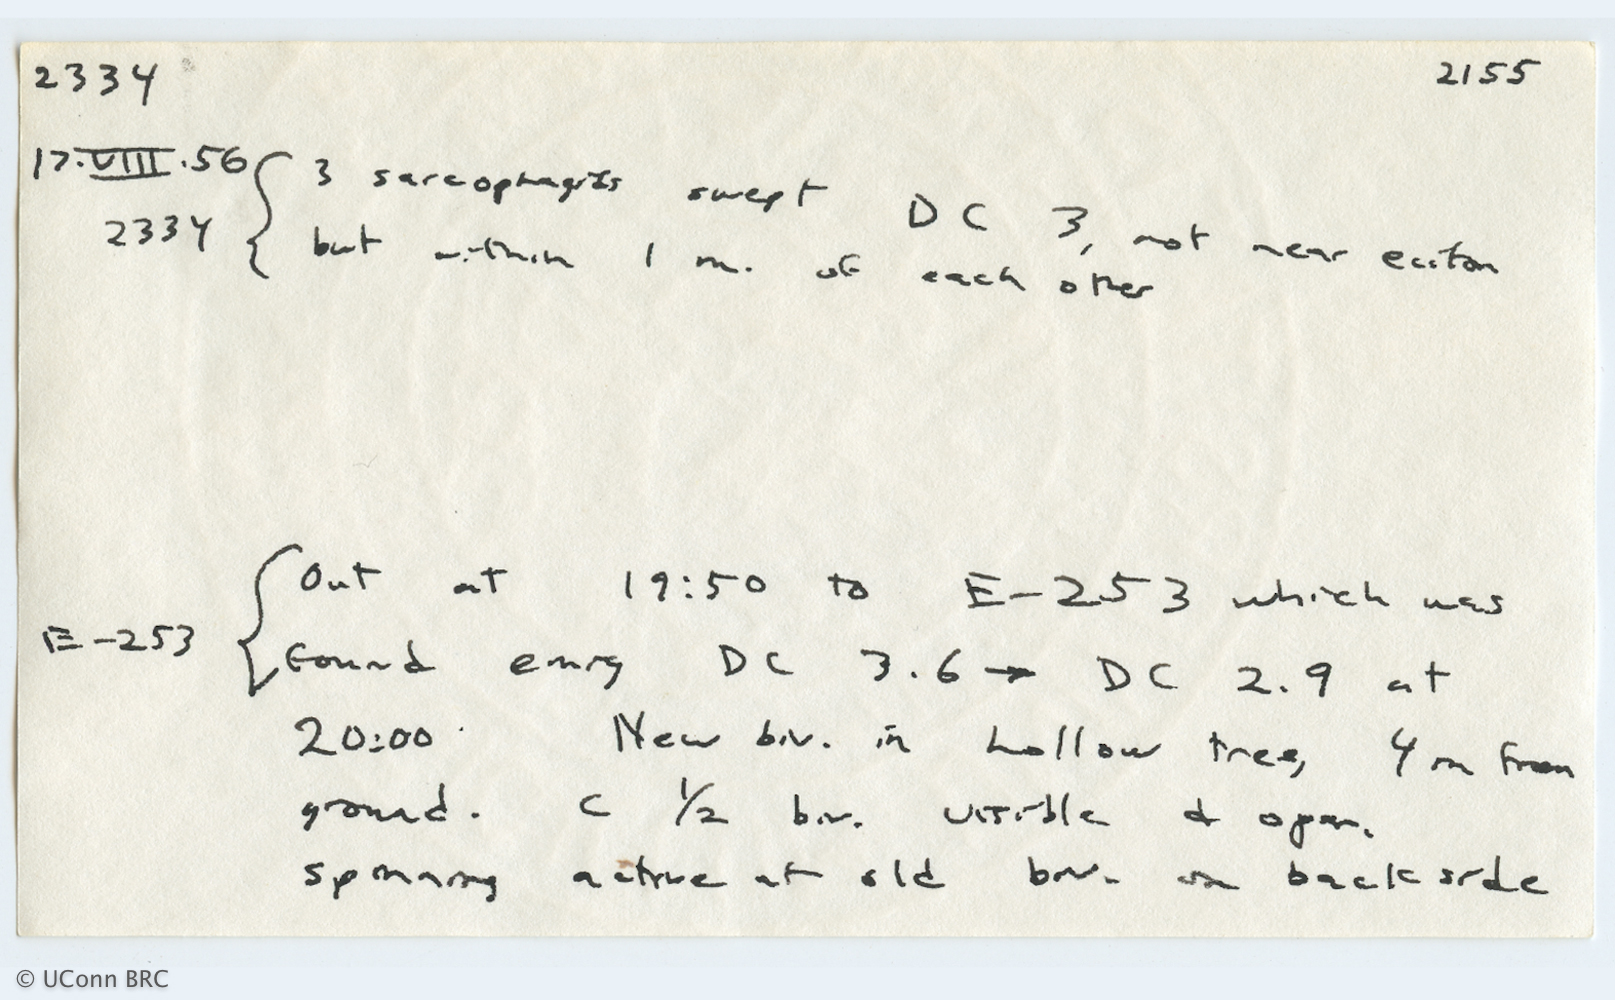 2334 2155
17.VIII.56 { 3 sarcophagids swept DC 3, not near eciton
2334 but within 1 m. of each other
Out at 19:50 to E-253 which was
E-253 { found emig DC 3.6 → DC 2.9 at
20:00. New biv. in hollow tree, 4 m from
ground. C 1/2 biv. visible & open.
spinning active at old biv. on backside
© UConn BRC